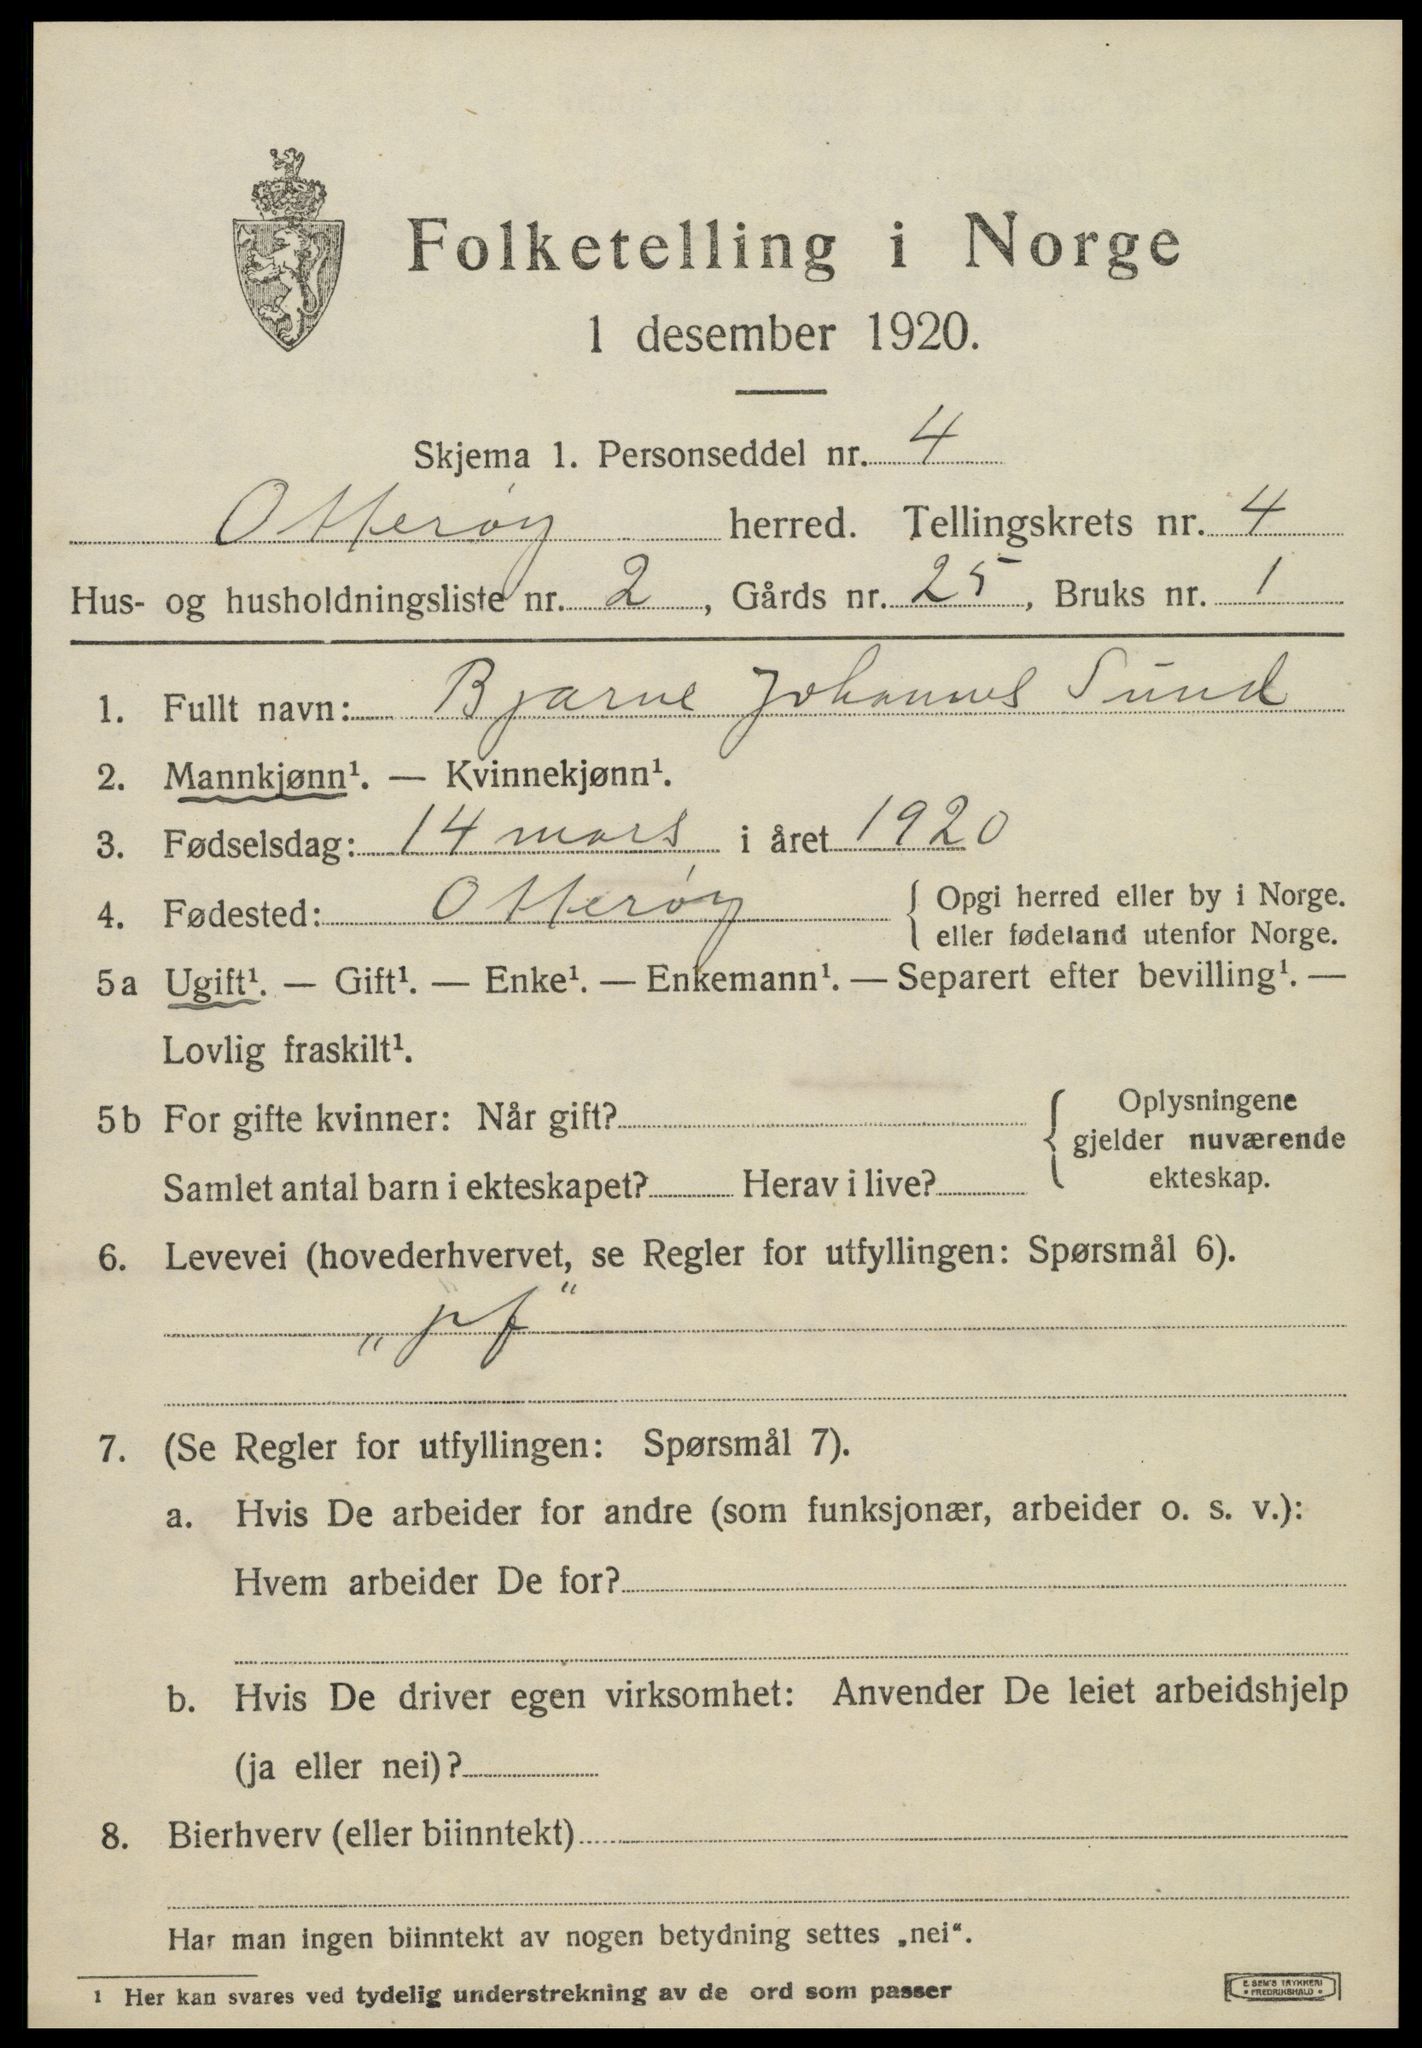 Folketelling i Norge
1 desember 1920.
Skjema 1. Personseddel nr. 4
Otterøy herred. Tellingskrets nr. 4
Hus- og husholdningsliste nr. 2, Gårds nr. 25, Bruks nr. 1
1. Fullt navn: Bjarne Johannes Sund
2. Mannkjønn¹. — Kvinnekjønn¹.
3. Fødselsdag: 14 mars i året 1920
4. Fødested: Otterøy { Opgi herred eller by i Norge.
eller fødeland utenfor Norge.
5a Ugift¹. — Gift¹. — Enke¹. — Enkemann¹. — Separert efter bevilling¹. —
Lovlig fraskilt¹.
5b For gifte kvinner: Når gift? { Oplysningene
gjelder nuværende
Samlet antal barn i ekteskapet? Herav i live? ekteskap.
6. Levevei (hovederhvervet, se Regler for utfyllingen: Spørsmål 6).
„pf“
7. (Se Regler for utfyllingen: Spørsmål 7).
a. Hvis De arbeider for andre (som funksjonær, arbeider o. s. v.):
Hvem arbeider De for?
b. Hvis De driver egen virksomhet: Anvender De leiet arbeidshjelp
(ja eller nei)?
8. Bierhverv (eller biinntekt)
Har man ingen biinntekt av nogen betydning settes „nei“.
1 Her kan svares ved tydelig understrekning av de ord som passer
E. SEM'S TRYKKERI
• FREDRIKSHALD •